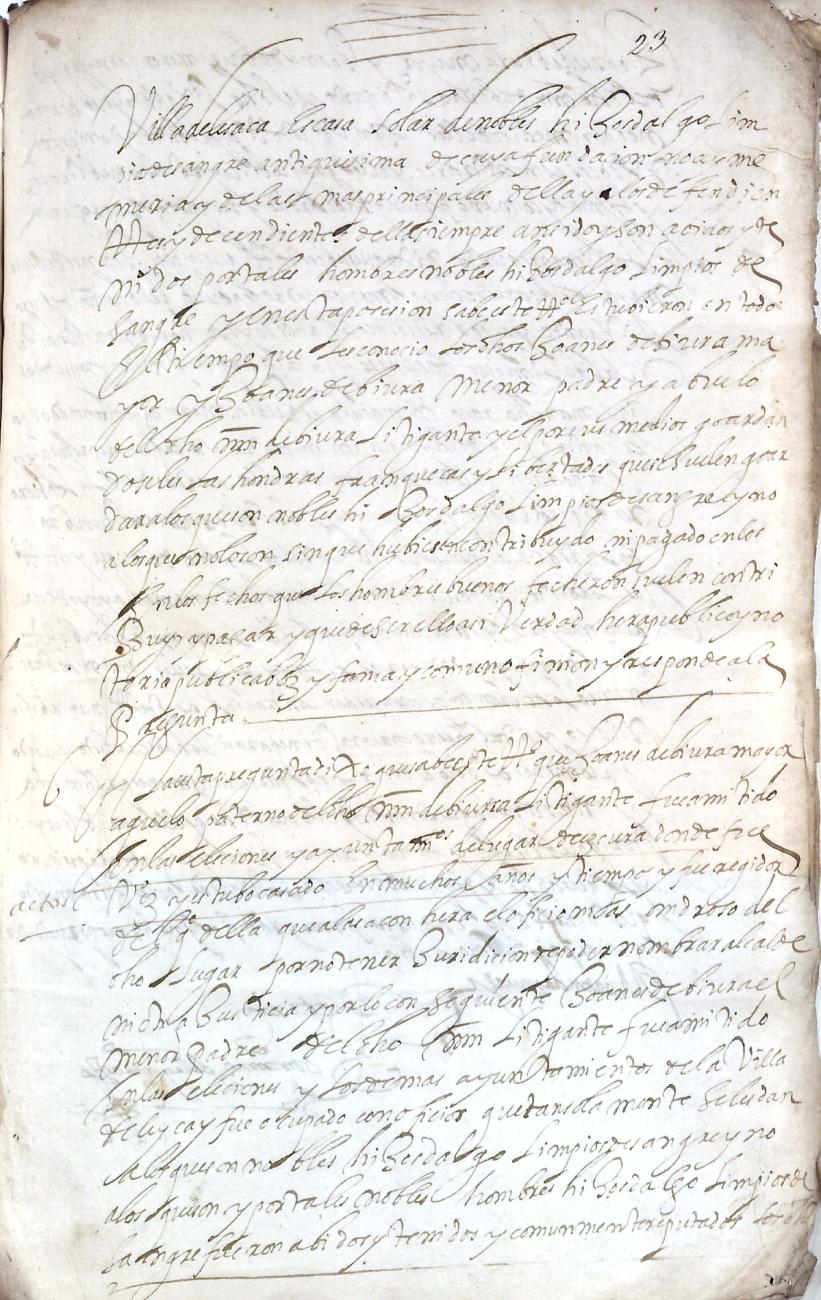 23
Villa de lusaca es casa solar de nobles hijosdalgo lim
pio de sangre antiquisima de cuya fundacion no ay me
moria y de las mas principales della y a los de fendien
ttes y decendientes della siempre an sido y son avidos y te
nidos por tales hombres nobles hijosdalgo limpios de
sangre y en esta posesion sabe este tto estuvieron en todo
el tiempo que les conocio los dhos Joanes de biura ma
yor y Joanes de biura menor padre y abuelo
del dho mm de biura litigante y el por sus medios goardan
doseles las hondras franqueças y libertades que se suelen goar
dar a los que son nobles hijosdalgo limpios de sangre y no
a los que no lo son sin que hubiesen contribuydo ni pagado en los
en los fechos que los hombres buenos fecheron suelen contri
buyr y pagar y que de ser ello asi verdad hera publico y no
toria publica boz y fama y comun ofinion y responde a la
pregunta
la esta pregunta dixo que sabe este tto que Joanes de biura mayor
aguelo paterno del dho mm de biurra litigante fue amitido
en las eleciones y ayuntamos del lugar de donde fue
vezo y estubo casado en muchos años y tiempo y fue regidor
actos
della que a la sacon hera el oficio mas ondroso del
dho lugar por no tener Juridicion de poder nombrar alcalde
ni otra Justicia y por lo con seguiente Joanes de biura el
menor padre del dho mm litigante fue amitido
en las eleciones y los demas ayuntamientos de la villa
de y fue ocupado con oficios que tansola mente se les dan
a los que son nobles hijosdalgo limpios de sangre y no
a los que son y por tales nobles hombres hijosdalgo limpios de
sangre fueron abidos y tenidos y comunmente reputados los dhos